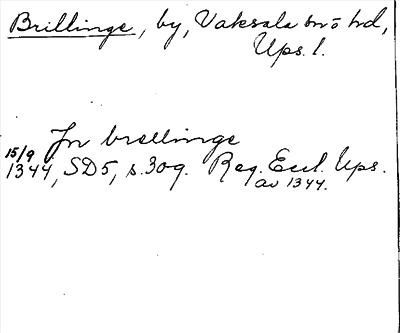 Brillinge, by, Vaksala sn o hd,
Ups. l.
Jn brellinge
15/9 1344, SD5, s. 309. Reg. Eccl. Ups.
av 1344.